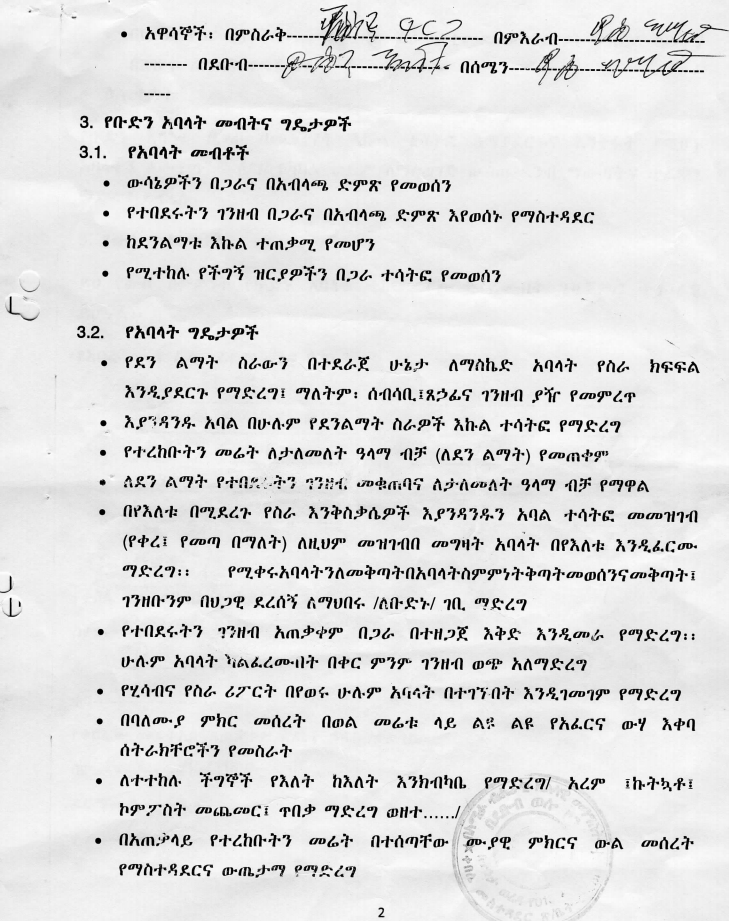 • አዋሳኞች፡ በምስራቅ---------- በምእራብ----------
-------- በደቡብ---------- በሰሜን----------
-----
3. የቡድን አባላት መብትና ግዴታዎች
3.1. የአባላት መብቶች
• ውሳኔዎችን በጋራና በአብላጫ ድምጽ የመወሰን
• የተበደሩትን ገንዘብ በጋራና በአብላጫ ድምጽ እየወሰኑ የማስተዳደር
• ከደንልማቱ እኩል ተጠቃሚ የመሆን
• የሚተከሉ የችግኝ ዝርያዎችን በጋራ ተሳትፎ የመወሰን
3.2. የአባላት ግዴታዎች
• የደን ልማት ስራውን በተደራጀ ሁኔታ ለማስኬድ አባላት የስራ ክፍፍል
እንዲያደርጉ የማድረግ፤ ማለትም፡ ሰብሳቢ፤ጸኃፊና ገንዘብ ያዥ የመምረጥ
• እያንዳንዱ አባል በሁሉም የደንልማት ስራዎች እኩል ተሳትፎ የማድረግ
• የተረከቡትን መሬት ለታለመለት ዓላማ ብቻ (ለደን ልማት) የመጠቀም
• ለደን ልማት የተበደሩትን ገንዘብ መቁጠባና ለታለመለት ዓላማ ብቻ የማዋል
• በየእለቱ በሚደረጉ የስራ እንቅስቃሴዎች እያንዳንዱን አባል ተሳትፎ መመዝገብ
(የቀረ፤ የመጣ በማለት) ለዚህም መዝገብበ መግዛት አባላት በየእለቱ እንዲፈርሙ
ማድረግ፡፡ የሚቀሩአባላትንለመቅጣትበአባላትስምምነትቅጣትመወሰንናመቅጣት፤
ገንዘቡንም በህጋዊ ደረሰኝ ለማህበሩ /ለቡድኑ/ ገቢ ማድረግ
• የተበደሩትን ገንዘብ አጠቃቀም በጋራ በተዘጋጀ እቅድ እንዲመራ የማድረግ፡፡
ሁሉም አባላት ካልፈረሙበት በቀር ምንም ገንዘብ ወጭ አለማድረግ
• የሂሳብና የስራ ሪፖርት በየወሩ ሁሉም አባላት በተገኙበት እንዲገመገም የማድረግ
• በባለሙያ ምክር መሰረት በወል መሬቱ ላይ ልዩ ልዩ የአፈርና ውሃ እቀባ
ሰትራክቸሮችን የመስራት
• ለተተከሉ ችግኞች የእለት ከእለት እንክብካቤ የማድረግ/ አረም ፤ኩትኳቶ፤
ኮምፖስት መጨመር፤ ጥበቃ ማድረግ ወዘተ....../
• በአጠቃላይ የተረከቡትን መሬት በተሰጣቸው ሙያዊ ምክርና ውል መሰረት
የማስተዳደርና ውጤታማ የማድረግ
2